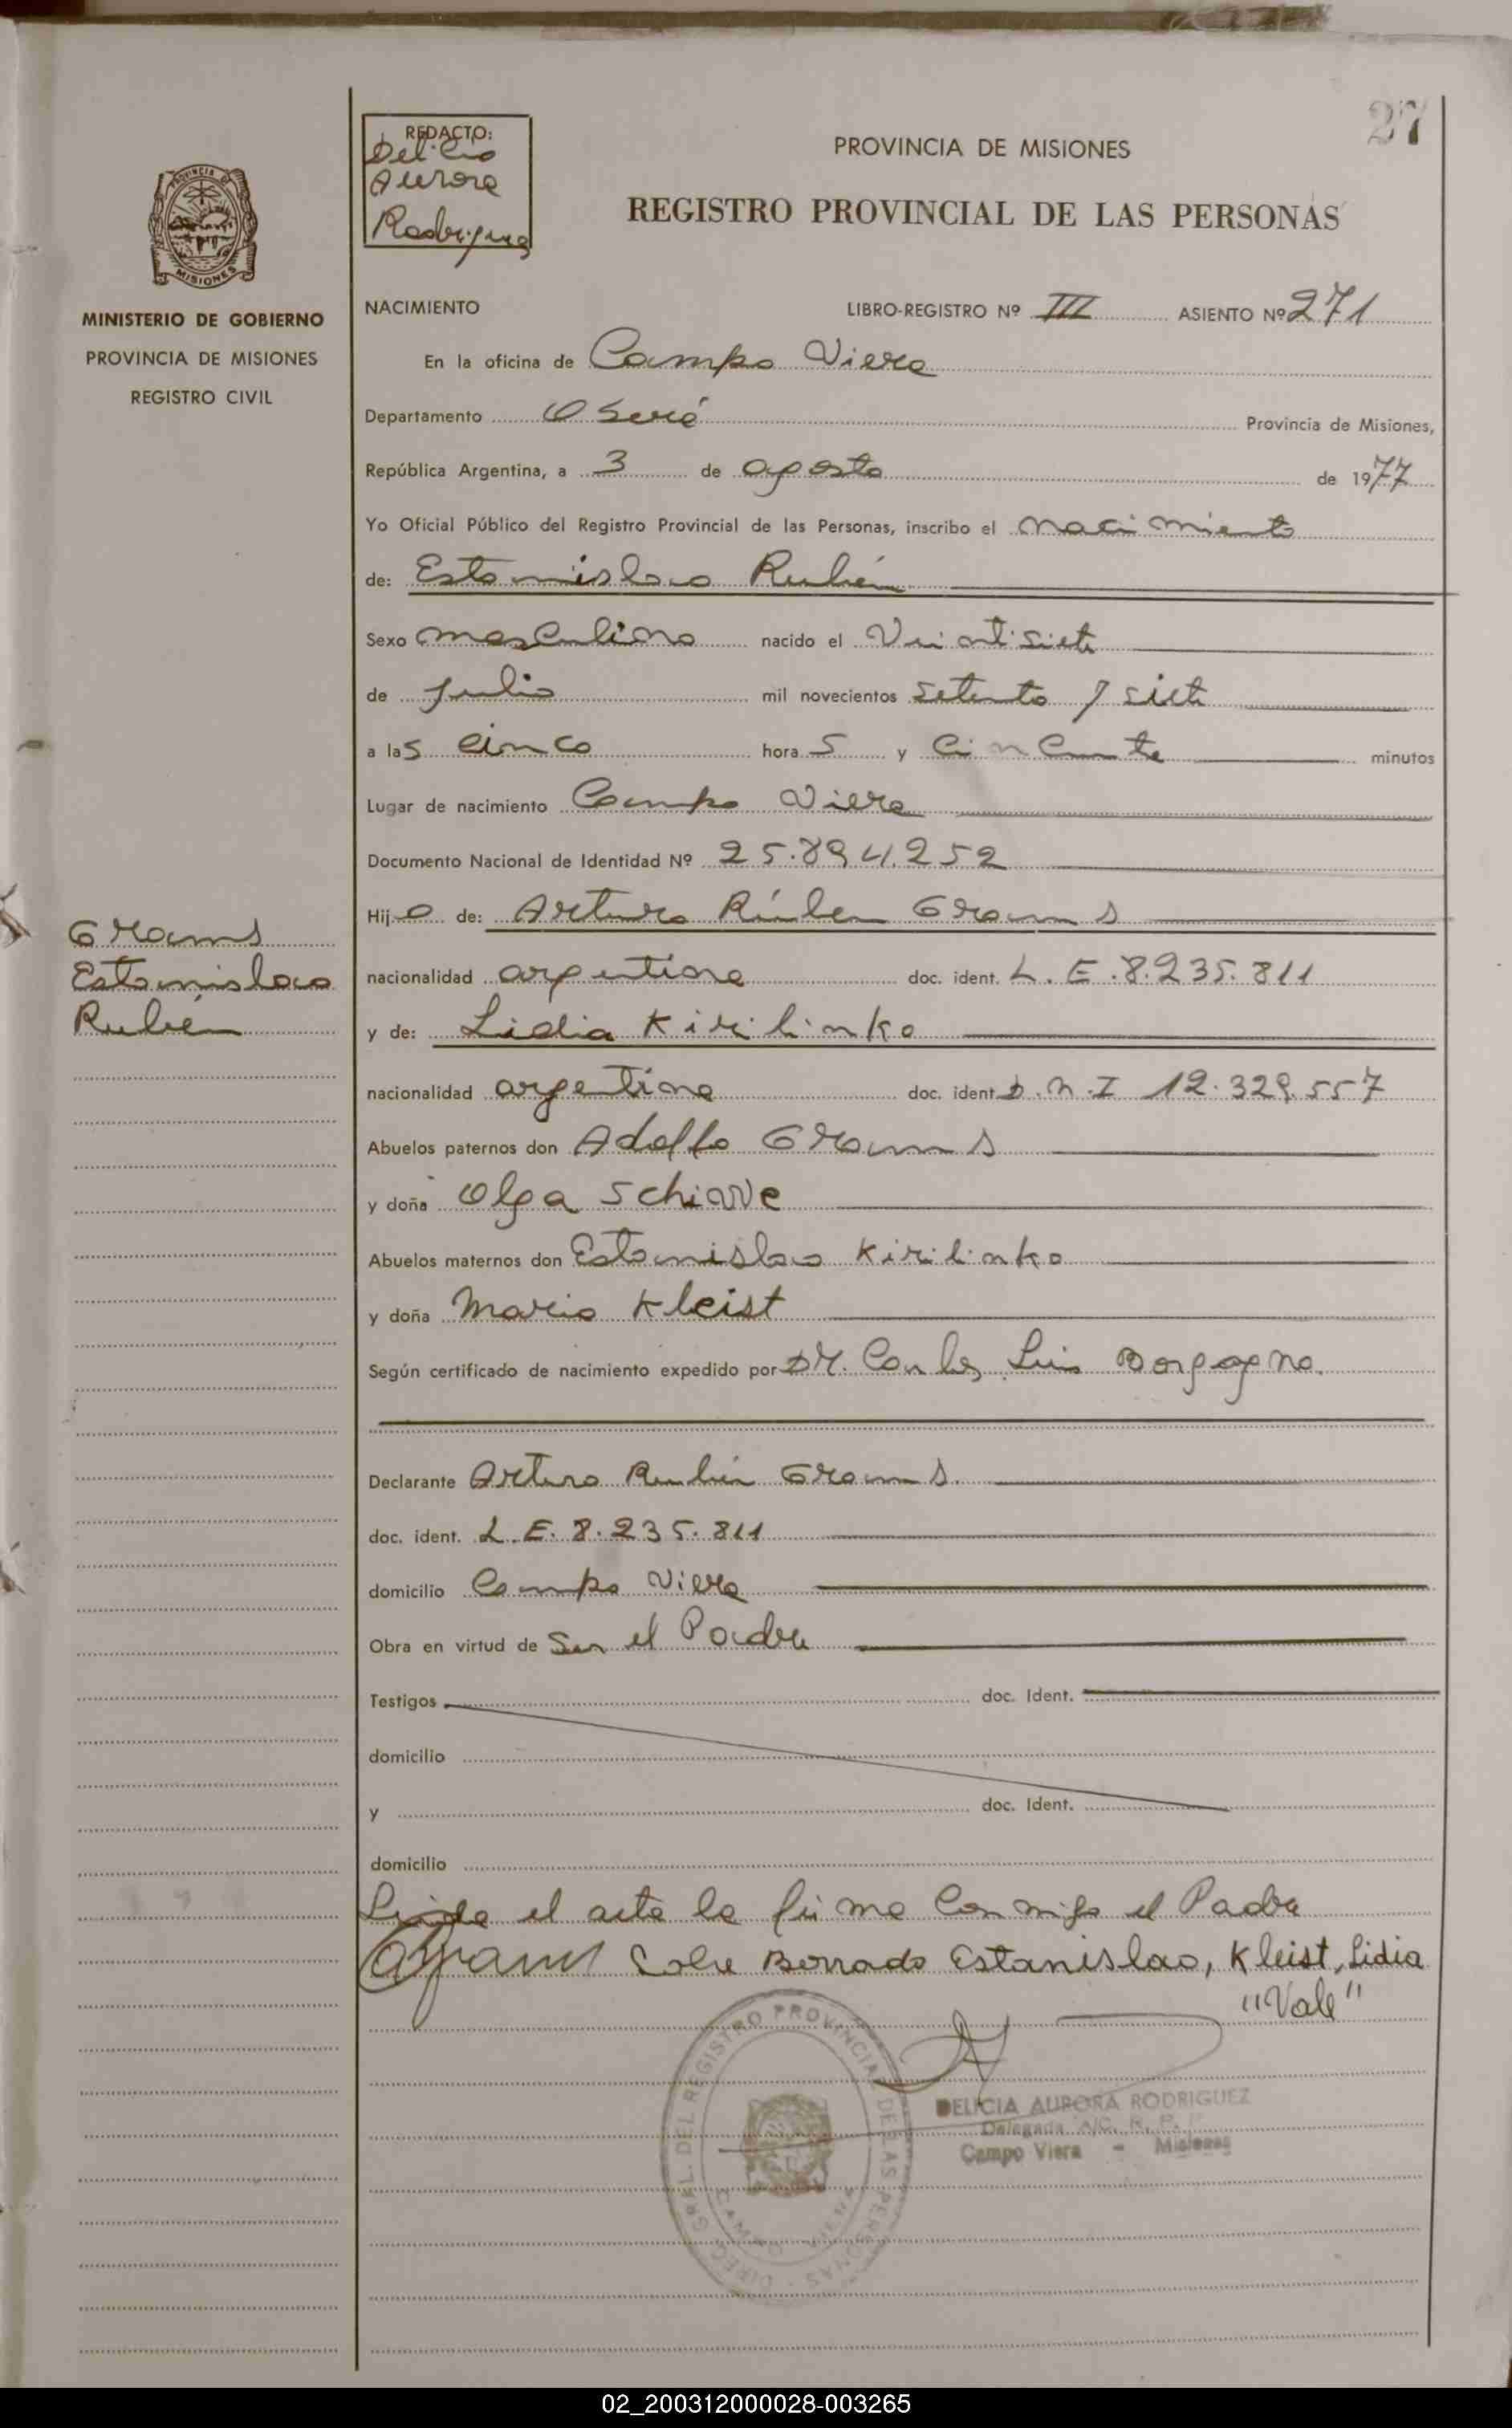 27
REDACTO:
Delicia
Aurora
Rodriguez
PROVINCIA DE MISIONES
REGISTRO PROVINCIAL DE LAS PERSONAS
MISIONES
MINISTERIO DE GOBIERNO
PROVINCIA DE MISIONES
REGISTRO CIVIL
NACIMIENTO LIBRO-REGISTRO Nº III ASIENTO Nº 271
En la oficina de Campo Viera
Departamento Oberá Provincia de Misiones,
República Argentina, a 3 de agosto de 1977
Yo Oficial Público del Registro Provincial de las Personas, inscribo el nacimiento
de: Estanislao Rubén
Sexo masculino nacido el Veintisiete
de julio mil novecientos setenta y siete
a las cinco horas y cincuenta minutos
Lugar de nacimiento Campo Viera
Documento Nacional de Identidad Nº 25.894.252
Hijo de: Arturo Rúben Grams
Grams
Estanislao
Rubén
nacionalidad argentina doc. ident. L.E.8.235.811
y de: Lidia Kirilinko
nacionalidad argentina doc. ident. D.N.I 12.329.557
Abuelos paternos don Adolfo Grams
y doña Olga Schiavve
Abuelos maternos don Estanislao Kirilinko
y doña Maria Kleist
Según certificado de nacimiento expedido por Dr. Carlos Luis Borgogno.
Declarante Arturo Rubén Grams.
doc. ident. L.E. 8.235.811
domicilio Campo Viera
Obra en virtud de Ser el Padre
Testigos doc. Ident.
domicilio
y doc. Ident.
domicilio
Leida el acta la firma conmigo el Padre
Sobre Borrado Estanislao, Kleist, Lidia
"Vale"
DIREC. GRAL. DEL REGISTRO PROVINCIAL DE LAS PERSONAS
CAMPO VIERA
DELICIA AURORA RODRIGUEZ
Delegada A/C. R. P. P.
Campo Viera - Misiones
02_200312000028-003265